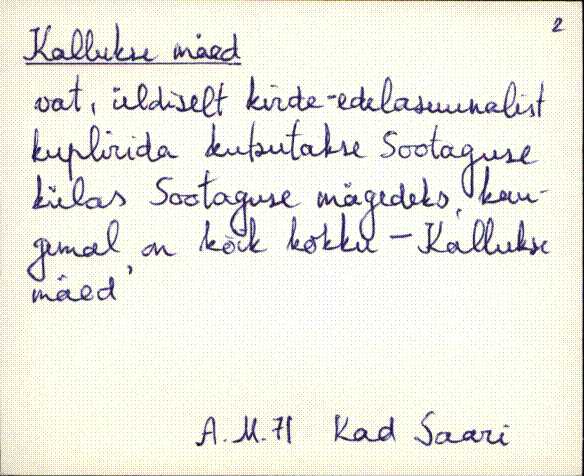 2
Kallukse mäed
vat, üldiselt kirde-edelasuunalist
kuplirida kutsutakse Sootaguse
külas Sootaguse mägedeks, kau-
gemal on kõik kokku - Kallukse
mäed,
A. M. 71 Kad Saari